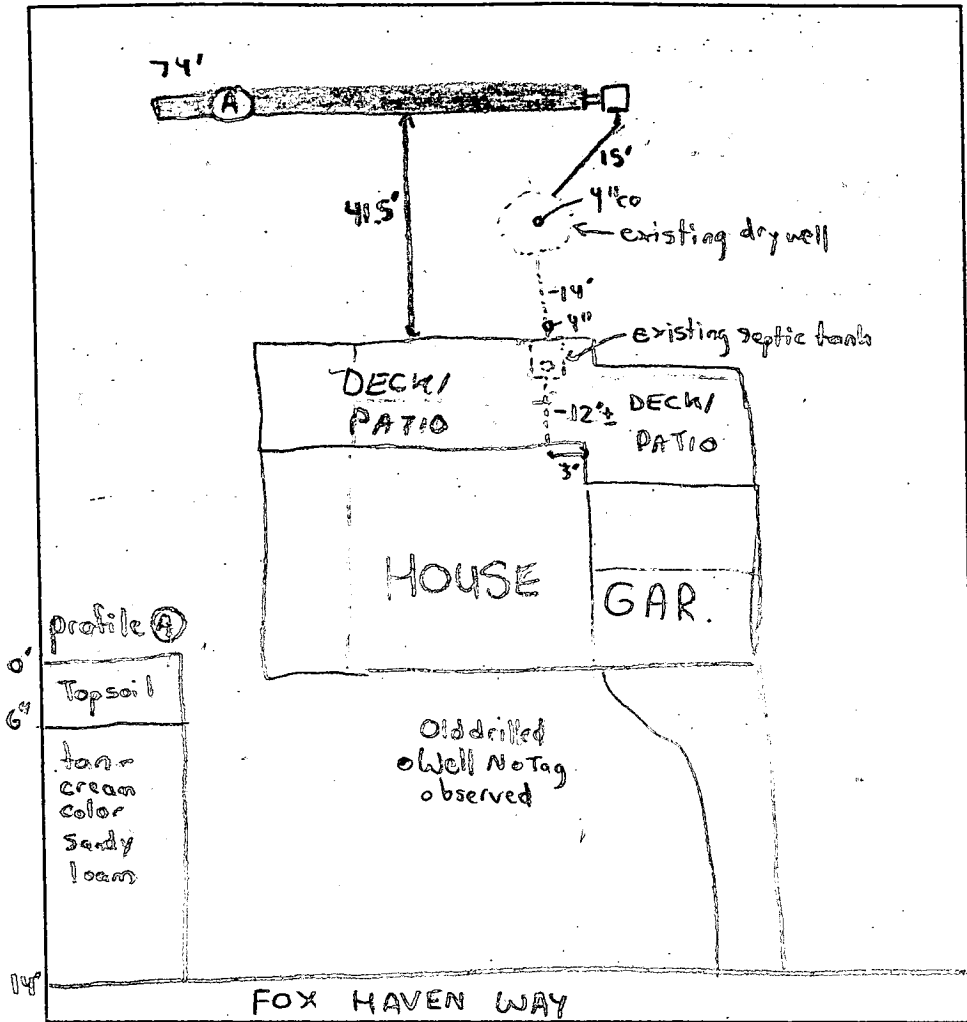 74'
A
15'
41.5'
4"co
existing drywell
-14'
4"
existing septic tank
DECK/
PATIO
-12'±
DECK/
PATIO
3'
HOUSE
GAR.
profile A
0'
Topsoil
6"
tan-
cream
color
sandy
loam
Old drilled
Well No Tag
observed
14'
FOX HAVEN WAY